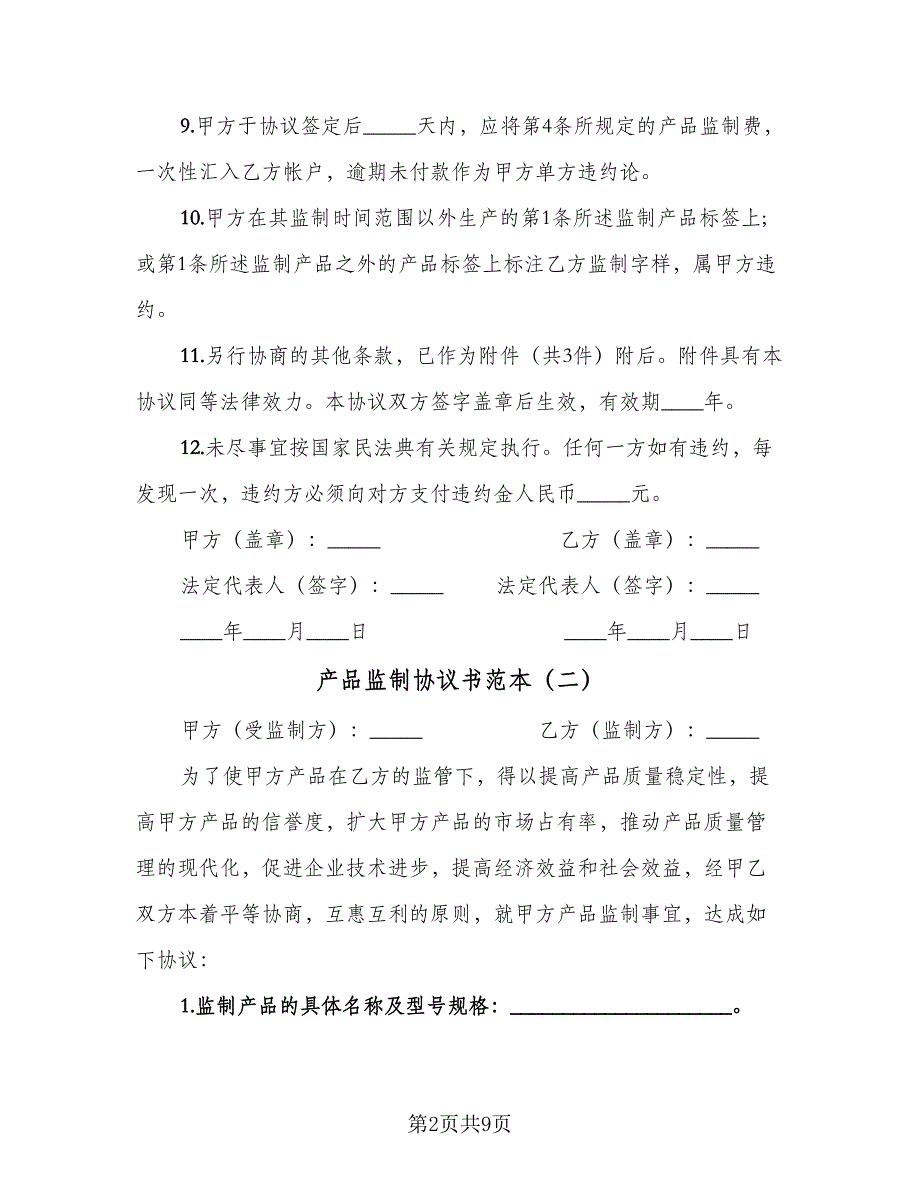 9.甲方于协议签定后_____天内，应将第4条所规定的产品监制费，
一次性汇入乙方帐户，逾期未付款作为甲方单方违约论。
10.甲方在其监制时间范围以外生产的第1条所述监制产品标签上；
或第1条所述监制产品之外的产品标签上标注乙方监制字样，属甲方违
约。
11.另行协商的其他条款，已作为附件（共3件）附后。附件具有本
协议同等法律效力。本协议双方签字盖章后生效，有效期____年。
12.未尽事宜按国家民法典有关规定执行。任何一方如有违约，每
发现一次，违约方必须向对方支付违约金人民币_____元。
甲方（盖章）：_____ 乙方（盖章）：_____
法定代表人（签字）：_____ 法定代表人（签字）：_____
____年____月____日 ____年____月____日
产品监制协议书范本（二）
甲方（受监制方）：_____ 乙方（监制方）：_____
为了使甲方产品在乙方的监管下，得以提高产品质量稳定性，提
高甲方产品的信誉度，扩大甲方产品的市场占有率，推动产品质量管
理的现代化，促进企业技术进步，提高经济效益和社会效益，经甲乙
双方本着平等协商，互惠互利的原则，就甲方产品监制事宜，达成如
下协议：
1.监制产品的具体名称及型号规格：_____________________。
第2页共9页